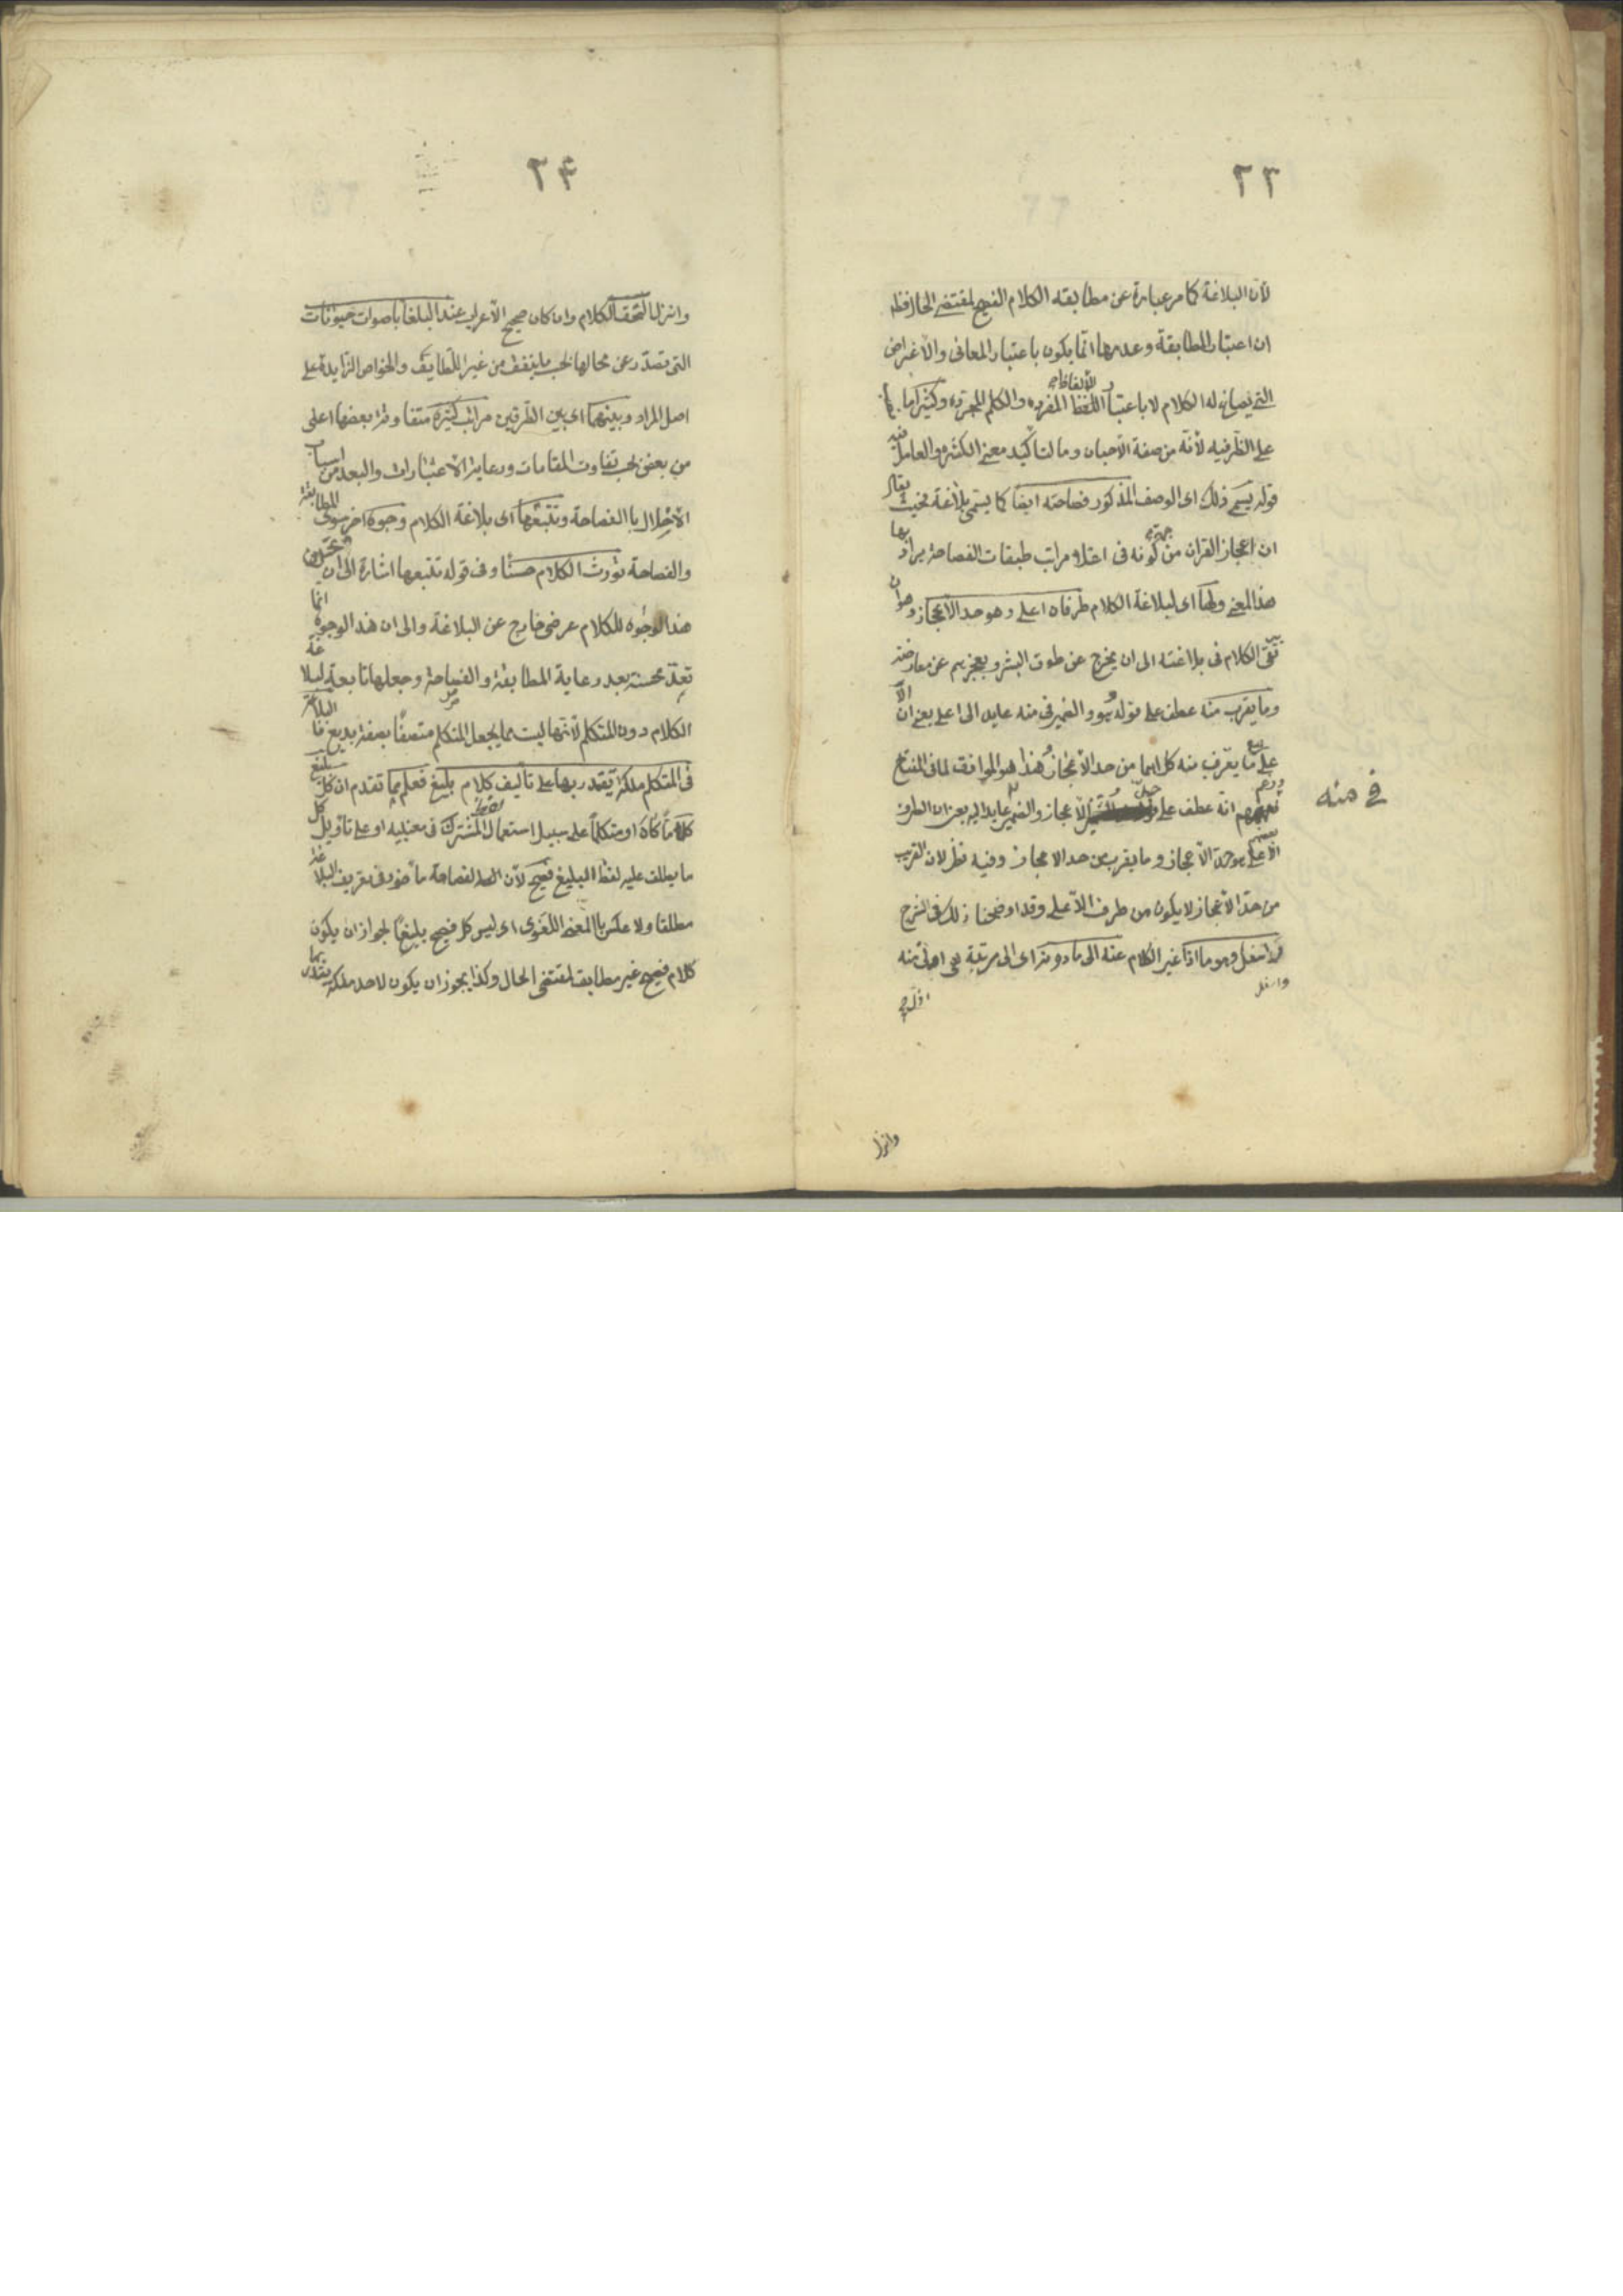 ٢٣
لأن البلاغة كما مر عبارة عن مطابقة الكلام الفصيح لمقتضى الحال فظ
ان اعتبار المطابقة وعدمها انما يكون باعتبار المعانى والاغراض
التى يصاغ له الكلام لا باعتبار الالفاظ المفردة والكلم المجردة وكثيرا ما
على الظرفيه لأنه من صفة الاحيان وما لتأكيد معنى الكثرة والعامل فيه
قوله يسمى ذلك اى الوصف المذكور فصاحة ايضا كما يسمى بلاغة فحيث يقال
ان اعجاز القران من جهة كونه فى اعلا مراتب طبقات الفصاحة يراد بها
هذا المعنى ولها اى لبلاغة الكلام طرفان اعلى وهو حد الاعجاز وهو ان
يرتقى الكلام فى بلاغته الى ان يخرج عن طوق البشر ويعجزهم عن معارضته
وما يقرب منه عطف على قوله هو والضمير فى منه عايد الى اعلى يعنى ان الا
على مع ما يقرب منه كلاهما من حد الاعجاز وهذا هو الموافق لما فى المفتاح
وزعم بعضهم انه عطف على حد الاعجاز والضمير عايد اليه يعنى ان الطرف
الاعلى هو حد الاعجاز وما يقرب من حد الاعجاز وفيه نظر لان القريب
من حد الاعجاز لا يكون من طرف الاعلى وقد اوضحنا ذلك فى الشرح
واسفل وهو ما اذا غير الكلام عنه الى ما دونه اى الى مرتبة هى ادنى منه
واسفل
وانزل
فى منه
٢٤
وانزل التحق الكلام وان كان صحيح الاعراب عند البلغا باصوات حيوانات
التى تصدر عن محالها بحسب ما يتفق من غير اللطايف والخواص الزايدة على
اصل المراد وبينهما اى بين الطرفين مراتب كثيرة متفاوتة بعضها اعلى
من بعض بحسب تفاوت المقامات ورعاية الاعتبارات والبعد من اسباب
الاخلال باالفصاحة وتتبعها اى بلاغة الكلام وجوه اخر سوى المطابقة
والفصاحة تورث الكلام حسنا وفى قوله تتبعها اشارة الى ان تحسين
هذا الوجوه للكلام عرضى خارج عن البلاغة والى ان هذه الوجوه انما
تعد محسنة بعد رعاية المطابقة والفصاحة وجعلها تابعة لبلاغة
الكلام دون المتكلم لأنها ليست مما يجعل المتكلم متصفا بصفة والبلاغة
فى المتكلم ملكة يقتدر بها على تأليف كلام بليغ فعلم مما تقدم ان كل بليغ
كلاما كان او متكلما على سبيل استعمال لفظ المشترك فى معنييه او على تأويل كل
ما يطلق عليه لفظ البليغ فصيح لأن الفصاحة مأخوذ فى تعريف البلاغة
مطلقا ولا عكس باالمعنى اللغوى اى ليس كل فصيح بليغا لجواز ان يكون
كلام فصيح غير مطابق لمقتضى الحال وكذا يجوز ان يكون لاحد ملكة يقتدر بها